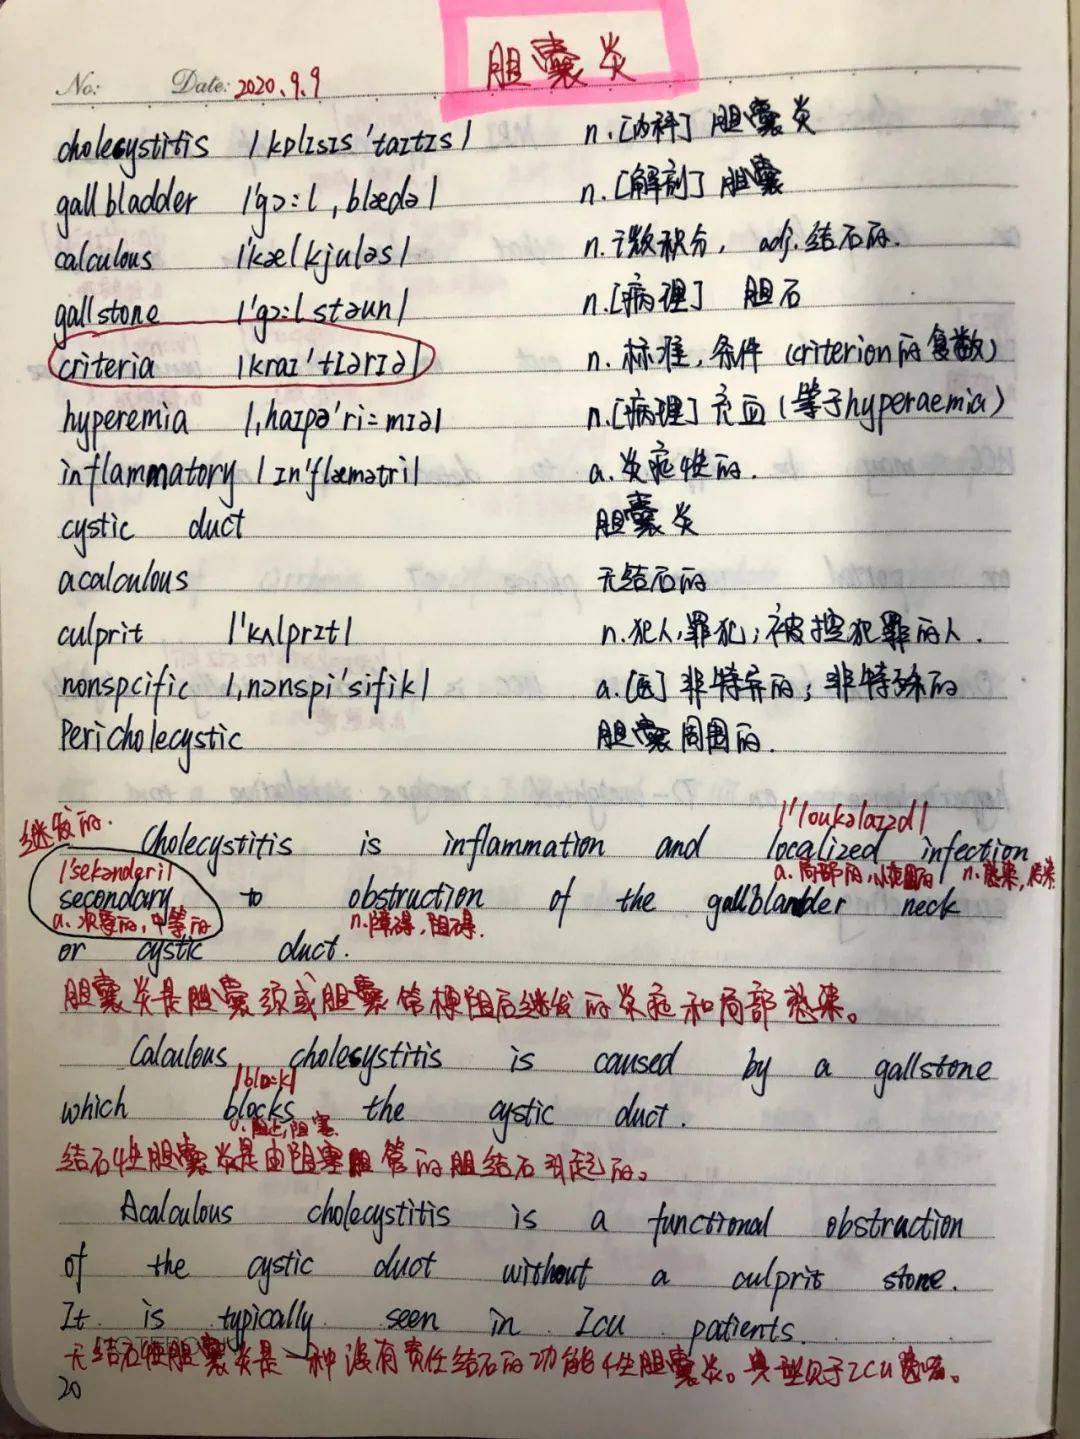 胆囊炎
No: Date: 2020.9.9
cholecystitis /kɒlɪsɪs'taɪtɪs/ n.[内科] 胆囊炎
gallbladder /'gɔ:l,blædə/ n.[解剖] 胆囊
calculous /'kælkjuləs/ n.微积分, adj.结石的.
gallstone /'gɔ:lstəun/ n.[病理] 胆石
criteria /kraɪ'tɪərɪə/ n.标准,条件 (criterion的复数)
hyperemia /,haɪpə'ri=mɪə/ n.[病理]充血(等于hyperaemia)
inflammatory /ɪn'flæmətri/ a.炎症性的.
cystic duct 胆囊炎
acalculous 无结石的
culprit /'kʌlprɪt/ n.犯人,罪犯;被控犯罪的人.
nonspcific /,nɔnspi'sifik/ a.[医]非特异的;非特殊的
Pericholecystic 胆囊周围的.
继发的. /'loukəlaɪzd/
Cholecystitis is inflammation and localized infection
/'sekəndəri/ a.局部的,小范围的 n.感染,传染
secondary to obstruction of the gallbladder neck
a.次要的,中等的 n.障碍,阻碍.
or cystic duct.
胆囊炎是胆囊颈或胆囊管梗阻后继发的炎症和局部感染。
Calculous cholecystitis is caused by a gallstone
/blɔ:k/
which blocks the cystic duct.
v.阻止,阻塞
结石性胆囊炎是由阻塞胆管的胆结石引起的。
Acalculous cholecystitis is a functional obstruction
of the cystic duct without a culprit stone.
It is typically seen in Icu patients.
无结石性胆囊炎是一种没有责任结石的功能性胆囊炎。典型见于ICU
20